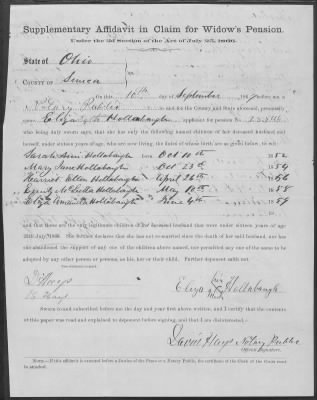 Supplementary Affidavit in Claim for Widow's Pension.
Under the 2d Section of the Act of July 25, 1866.
State of Ohio
County of Seneca } ss:
On this 10th day of September 186
Notary Public in and for the County and State aforesaid, personally
came Elizabeth Hollabaugh applicant for pension No.
who being duly sworn, says that she has only the following named children of her deceased husband and
herself, under sixteen years of age, who are now living, the dates of whose birth are as given below, to wit:
Sarah Ann Hollabaugh Oct 10th 1852
Mary Jane Hollabaugh Oct 1854
Harriet Ellen Hollabaugh April 26th 1856
Hollabaugh May 10th 1858
Hollabaugh June 4th 1859
and that these are the only legitimate children of her deceased husband that were under sixteen years of age
25th July, 1866. She further declares that she has not re-married since the death of her said husband, nor has
she abandoned the support of any one of the children above named, nor permitted any one of the same to be
adopted by any other person or persons, as his, her or their child. Further deponent saith not.
D Hays
Hays
Eliza her X mark Hollabaugh
Sworn to and subscribed before me the day and year first above written, and I certify that the contents
of this paper was read and explained to deponent before signing, and that I am disinterested.
David Hays Notary Public
Official Signature.
Note.—If this affidavit is executed before a Justice of the Peace or a Notary Public, the certificate of the Clerk of the Court must
be attached.